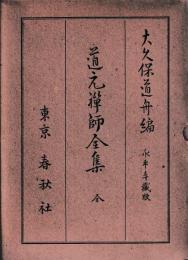 大久保道舟編
永平寺蔵版
道元禅師全集 全
東京 春秋社